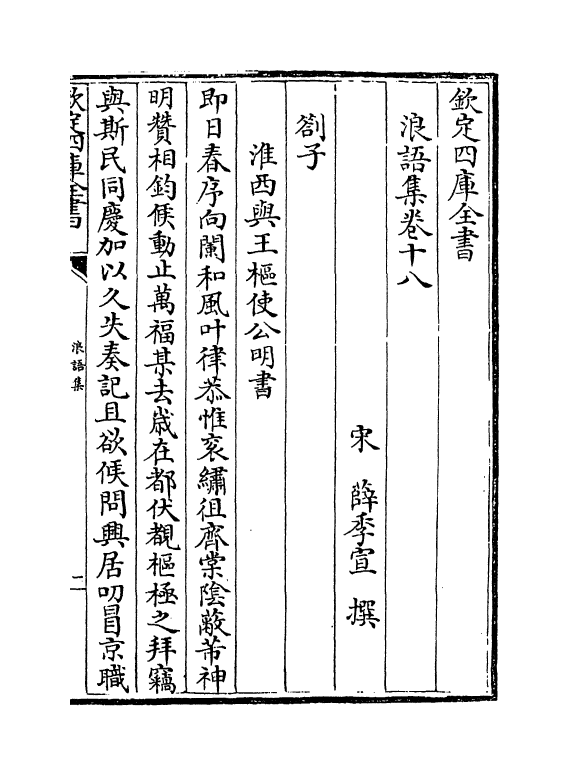 欽定四庫全書
浪語集卷十八
宋　薛季宣　撰
劄子
淮西與王樞使公明書
即日春序向闌和風叶律恭惟衮繡徂齊棠陰蔽芾神
明贊相鈞候動止萬福某去歲在都伏覩樞極之拜竊
與斯民同慶加以久失奏記且欲候問興居叨冒京職
欽定四庫全書
浪語集
二